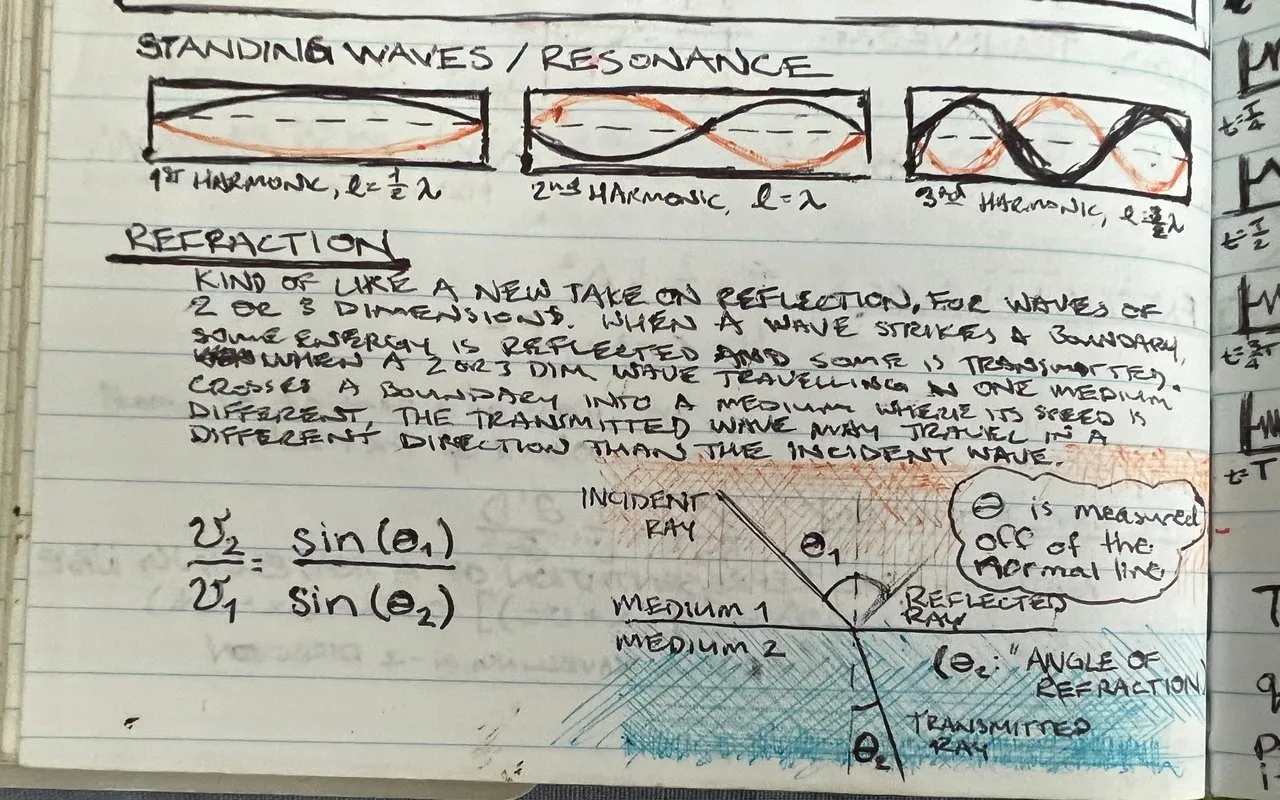 STANDING WAVES / RESONANCE
1ST HARMONIC, l = 1/2 λ
2nd HARMONIC, l = λ
3rd HARMONIC, l = 3/2 λ
REFRACTION
KIND OF LIKE A NEW TAKE ON REFLECTION, FOR WAVES OF
2 OR 3 DIMENSIONS. WHEN A WAVE STRIKES A BOUNDARY,
SOME ENERGY IS REFLECTED AND SOME IS TRANSMITTED.
WHEN A 2 OR 3 DIM WAVE TRAVELLING IN ONE MEDIUM
CROSSES A BOUNDARY INTO A MEDIUM WHERE ITS SPEED IS
DIFFERENT, THE TRANSMITTED WAVE MAY TRAVEL IN A
DIFFERENT DIRECTION THAN THE INCIDENT WAVE.
v2/v1 = sin(θ1)/sin(θ2)
INCIDENT
RAY
θ1
θ is measured
off of the
normal line
REFLECTED
RAY
MEDIUM 1
MEDIUM 2
(θ2: "ANGLE OF
REFRACTION
TRANSMITTED
RAY
θ2
t=π/4
t=π/2
t=T